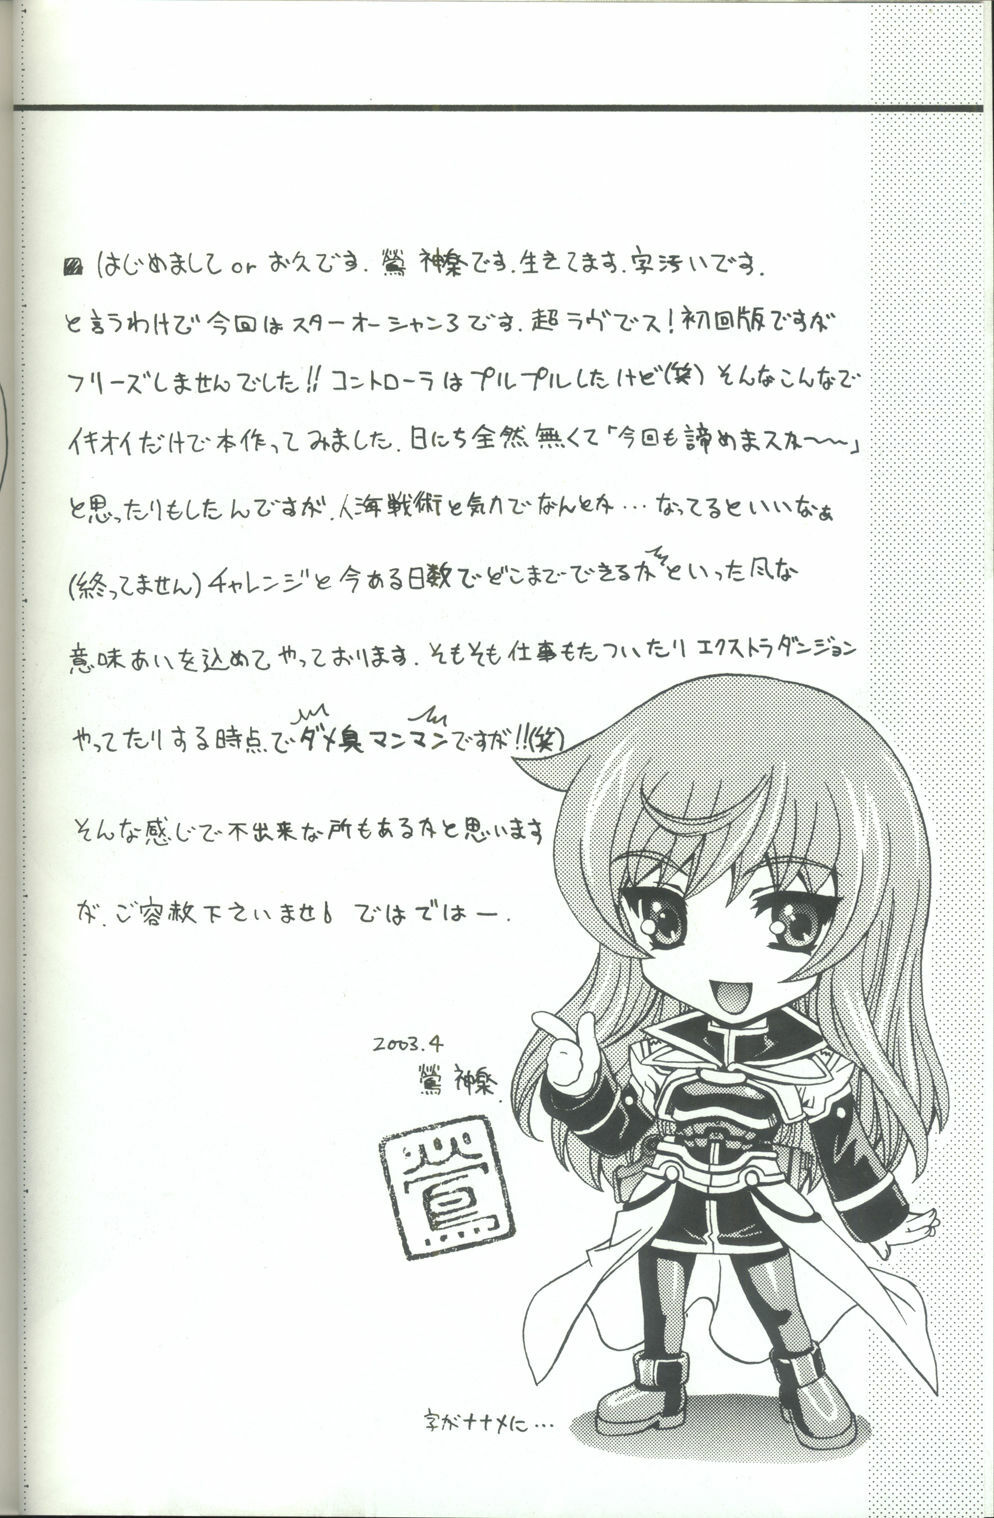 はじめまして or お久です. 鶯 神楽です.生きてます.字汚いです.
と言うわけで今回はスターオーシャン3です.超ラヴでス!初回版ですが
フリーズしませんでした!!コントローラはプルプルしたけど(笑) そんなこんなで
イキオイだけで本作ってみました.日にち全然無くて「今回も諦めまスか〜〜」
と思ったりもしたんですが.人海戦術と気力でなんとか…なってるといいなぁ
(終ってません)チャレンジと今ある日数でどこまでできるかといった風な
意味あいを込めてやっております.そもそも仕事もたついたりエクストラダンジョン
やってたりする時点でダメ臭マンマンですが!!(笑)
そんな感じで不出来な所もあるかと思います
が.ご容赦下さいませ。ではではー.
2003.4
鶯 神楽.
鶯
字がナナメに…